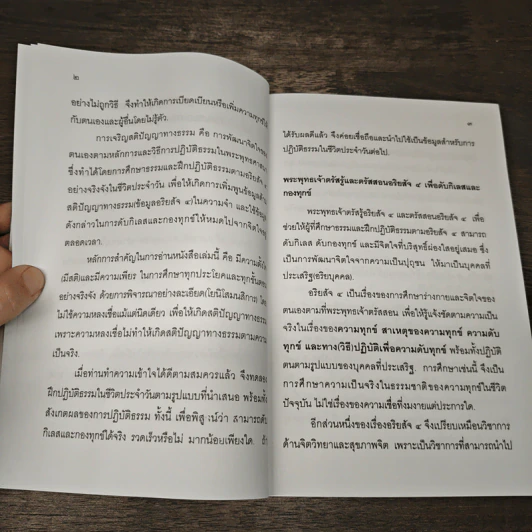 ๒
อย่างไม่ถูกวิธี จึงทำให้เกิดการเบียดเบียนหรือเพิ่มความทุกข์ให้
กับตนเองและผู้อื่นโดยไม่รู้ตัว.
การเจริญสติปัญญาทางธรรม คือ การพัฒนาจิตใจของ
ตนเองตามหลักการและวิธีการปฏิบัติธรรมในพระพุทธศาสนา
ซึ่งทำได้โดยการศึกษาธรรมและฝึกปฏิบัติธรรมตามอริยสัจ ๔
อย่างจริงจังในชีวิตประจำวัน เพื่อให้เกิดการเพิ่มพูนข้อมูลด้าน
สติปัญญาทางธรรม(ข้อมูลอริยสัจ ๔)ในความจำ และใช้ข้อมูล
ดังกล่าวในการดับกิเลสและกองทุกข์ให้หมดไปจากจิตใจ
ตลอดเวลา.
หลักการสำคัญในการอ่านหนังสือเล่มนี้ คือ มีความตั้งใจ
(มีสติ)และมีความเพียร ในการศึกษาทุกประโยคและทุกขั้นตอน
อย่างจริงจัง ด้วยการพิจารณาอย่างละเอียด(โยนิโสมนสิการ) โดย
ไม่ใช้ความหลงเชื่อแม้แต่นิดเดียว เพื่อให้เกิดสติปัญญาทางธรรม
เพราะความหลงเชื่อไม่ทำให้เกิดสติปัญญาทางธรรมตามความ
เป็นจริง.
เมื่อท่านทำความเข้าใจได้ดีตามสมควรแล้ว จึงทดลอง
ฝึกปฏิบัติธรรมในชีวิตประจำวันตามรูปแบบที่นำเสนอ พร้อมทั้ง
สังเกตผลของการปฏิบัติธรรม ทั้งนี้ เพื่อพิสูจน์ว่า สามารถดับ
กิเลสและกองทุกข์ได้จริง รวดเร็วหรือไม่ มากน้อยเพียงใด. ถ้า
๓
ได้รับผลดีแล้ว จึงค่อยเชื่อถือและนำไปใช้เป็นข้อมูลสำหรับการ
ปฏิบัติธรรมในชีวิตประจำวันต่อไป.
พระพุทธเจ้าตรัสรู้และตรัสสอนอริยสัจ ๔ เพื่อดับกิเลสและ
กองทุกข์
พระพุทธเจ้าตรัสรู้อริยสัจ ๔ และตรัสสอนอริยสัจ ๔ เพื่อ
ช่วยให้ผู้ที่ศึกษาธรรมและฝึกปฏิบัติธรรมตามอริยสัจ ๔ สามารถ
ดับกิเลส ดับกองทุกข์ และมีจิตใจที่บริสุทธิ์ผ่องใสอยู่เสมอ ซึ่ง
เป็นการพัฒนาจิตใจจากความเป็นปุถุชน ให้มาเป็นบุคคลที่
ประเสริฐ(อริยบุคคล).
อริยสัจ ๔ เป็นเรื่องของการศึกษาร่างกายและจิตใจของ
ตนเองตามที่พระพุทธเจ้าตรัสสอน เพื่อให้รู้แจ้งชัดตามความเป็น
จริงในเรื่องของความทุกข์ สาเหตุของความทุกข์ ความดับ
ทุกข์ และทาง(วิธี)ปฏิบัติเพื่อความดับทุกข์ พร้อมทั้งปฏิบัติ
ตนตามรูปแบบของบุคคลที่ประเสริฐ. การศึกษาเช่นนี้ จึงเป็น
การศึกษาความเป็นจริงในธรรมชาติของความทุกข์ในชีวิต
ปัจจุบัน ไม่ใช่เรื่องของความเชื่อที่งมงายแต่ประการใด.
อีกส่วนหนึ่งของเรื่องอริยสัจ ๔ จึงเปรียบเหมือนวิชาการ
ด้านจิตวิทยาและสุขภาพจิต เพราะเป็นวิชาการที่สามารถนำไป